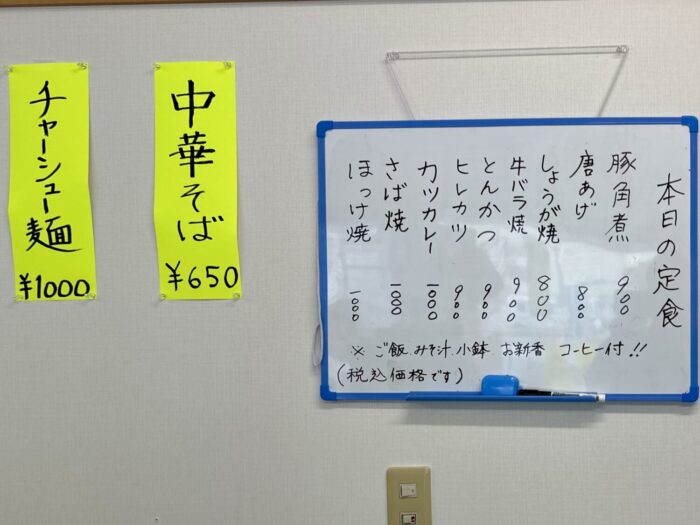 チャーシュー麺
¥1000
中華そば
¥650
本日の定食
豚角煮 900
唐あげ 800
しょうが焼 800
牛バラ焼 900
とんかつ 900
ヒレカツ 900
カツカレー 1000
さば焼 1000
ほっけ焼 1000
※ ご飯.みそ汁.小鉢.お新香 コーヒー付!!
(税込価格です)